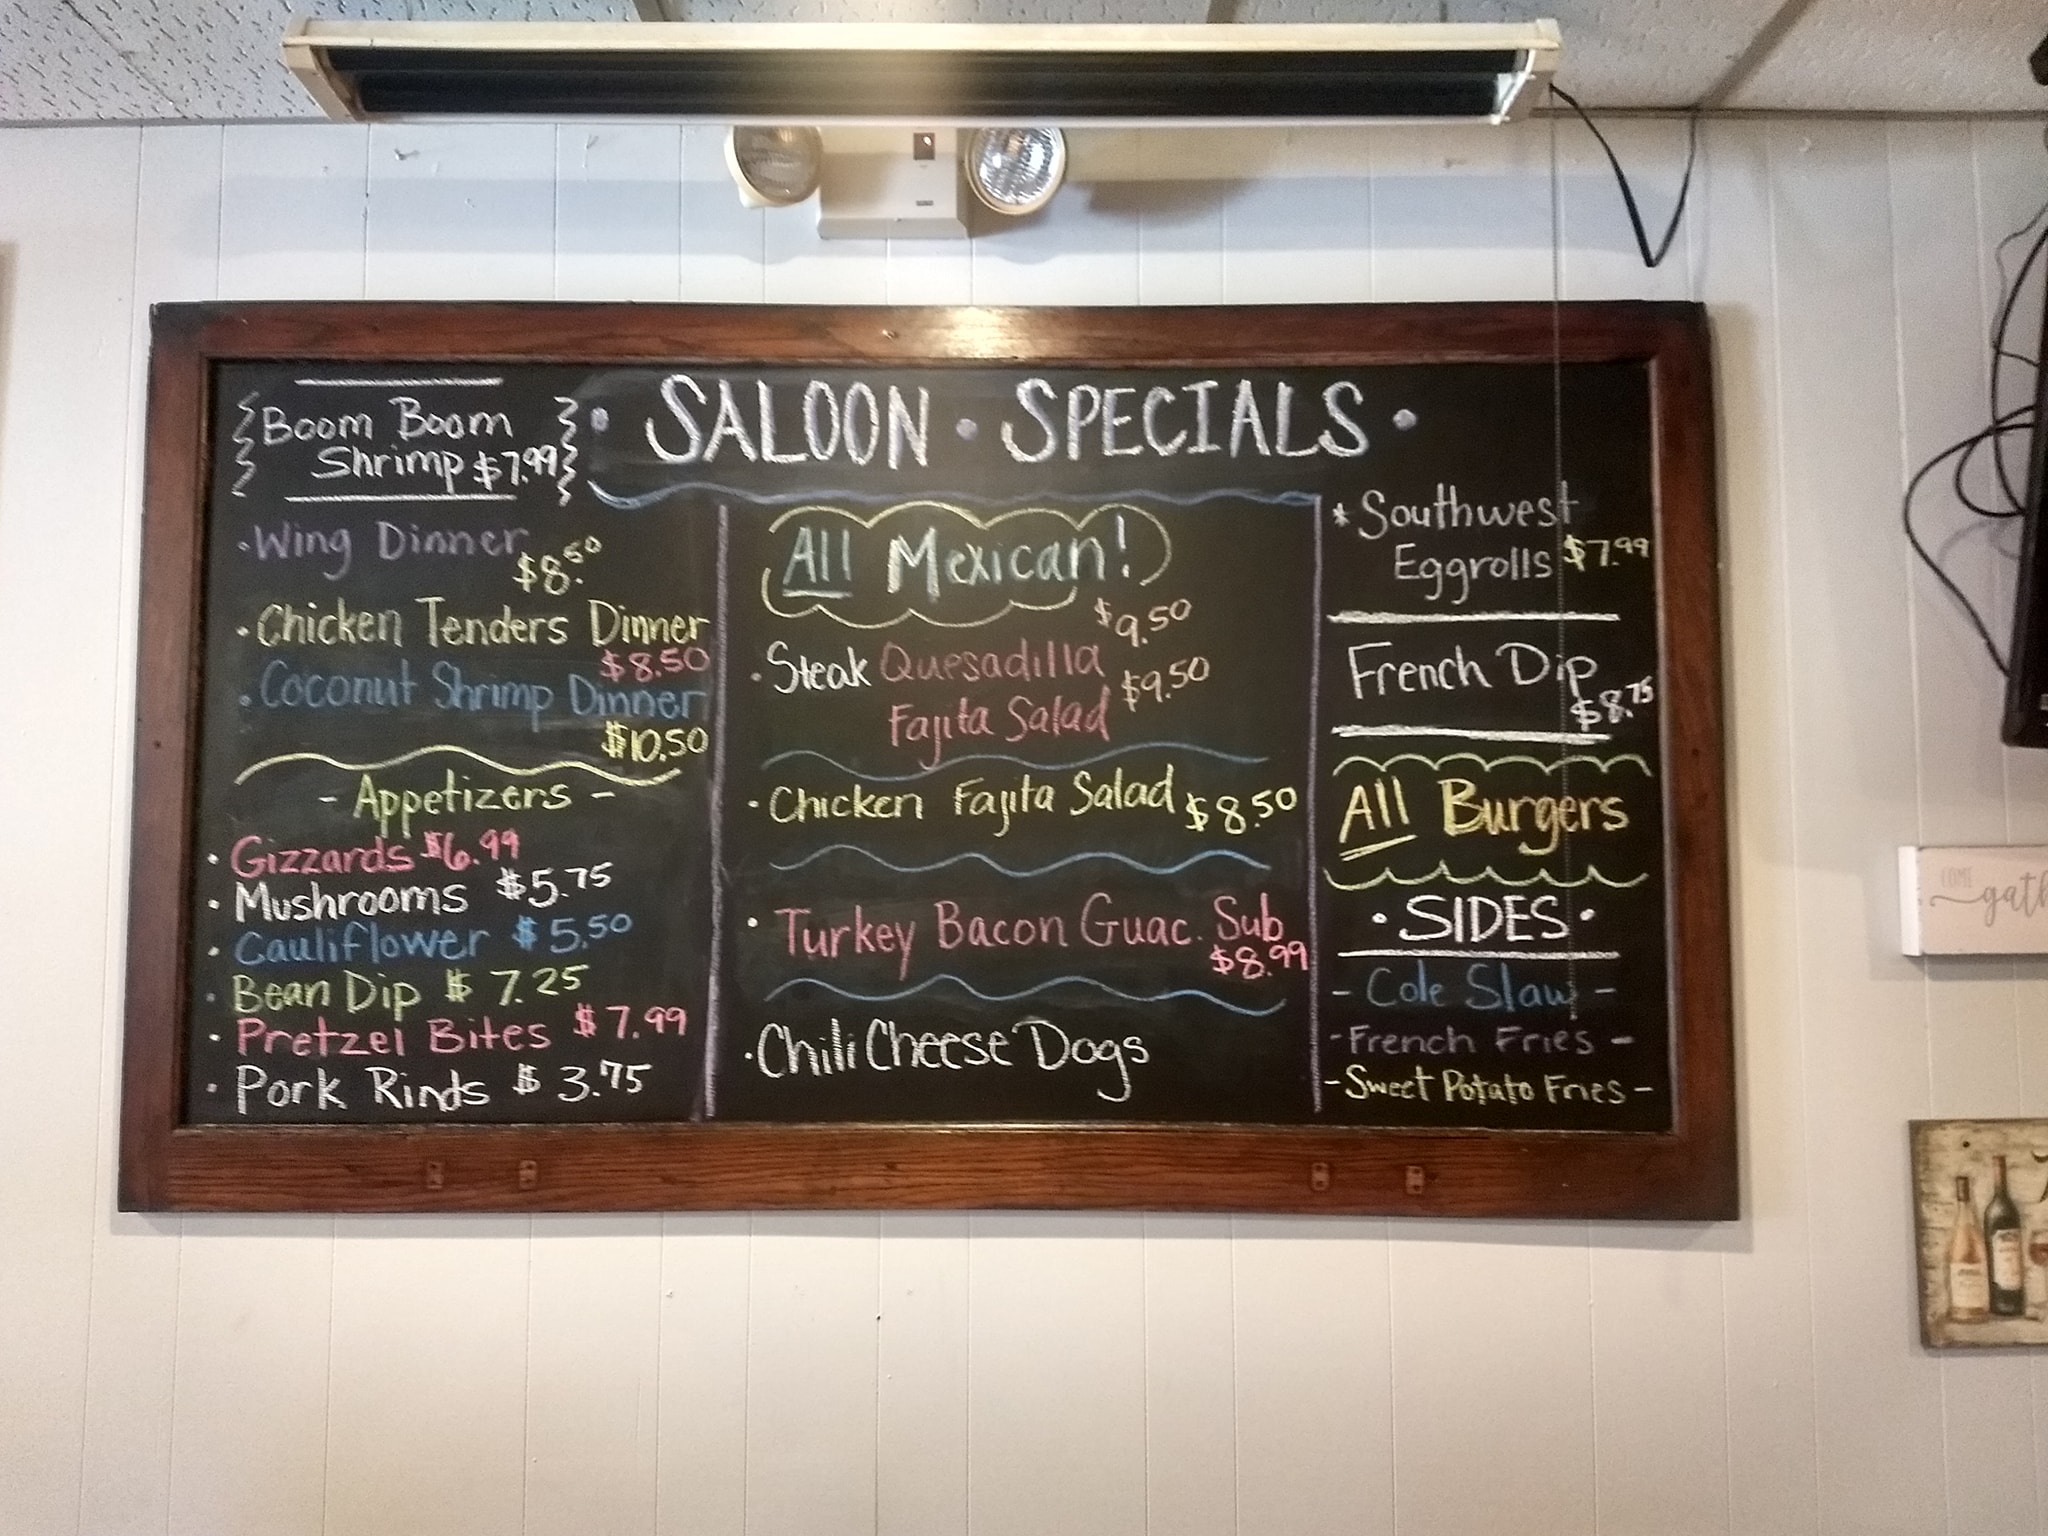 SALOON · SPECIALS ·
Boom Boom
Shrimp $7.99
· Wing Dinner
$8.50
· Chicken Tenders Dinner
$8.50
· Coconut Shrimp Dinner
$10.50
- Appetizers -
· Gizzards $6.99
· Mushrooms $5.75
· Cauliflower $5.50
· Bean Dip $7.25
· Pretzel Bites $7.99
· Pork Rinds $3.75
All Mexican!
$9.50
· Steak Quesadilla
Fajita Salad $9.50
· Chicken Fajita Salad $8.50
· Turkey Bacon Guac. Sub
$8.99
· Chili Cheese Dogs
* Southwest
Eggrolls $7.99
French Dip
$8.75
All Burgers
· SIDES ·
- Cole Slaw -
- French Fries -
- Sweet Potato Fries -
COME